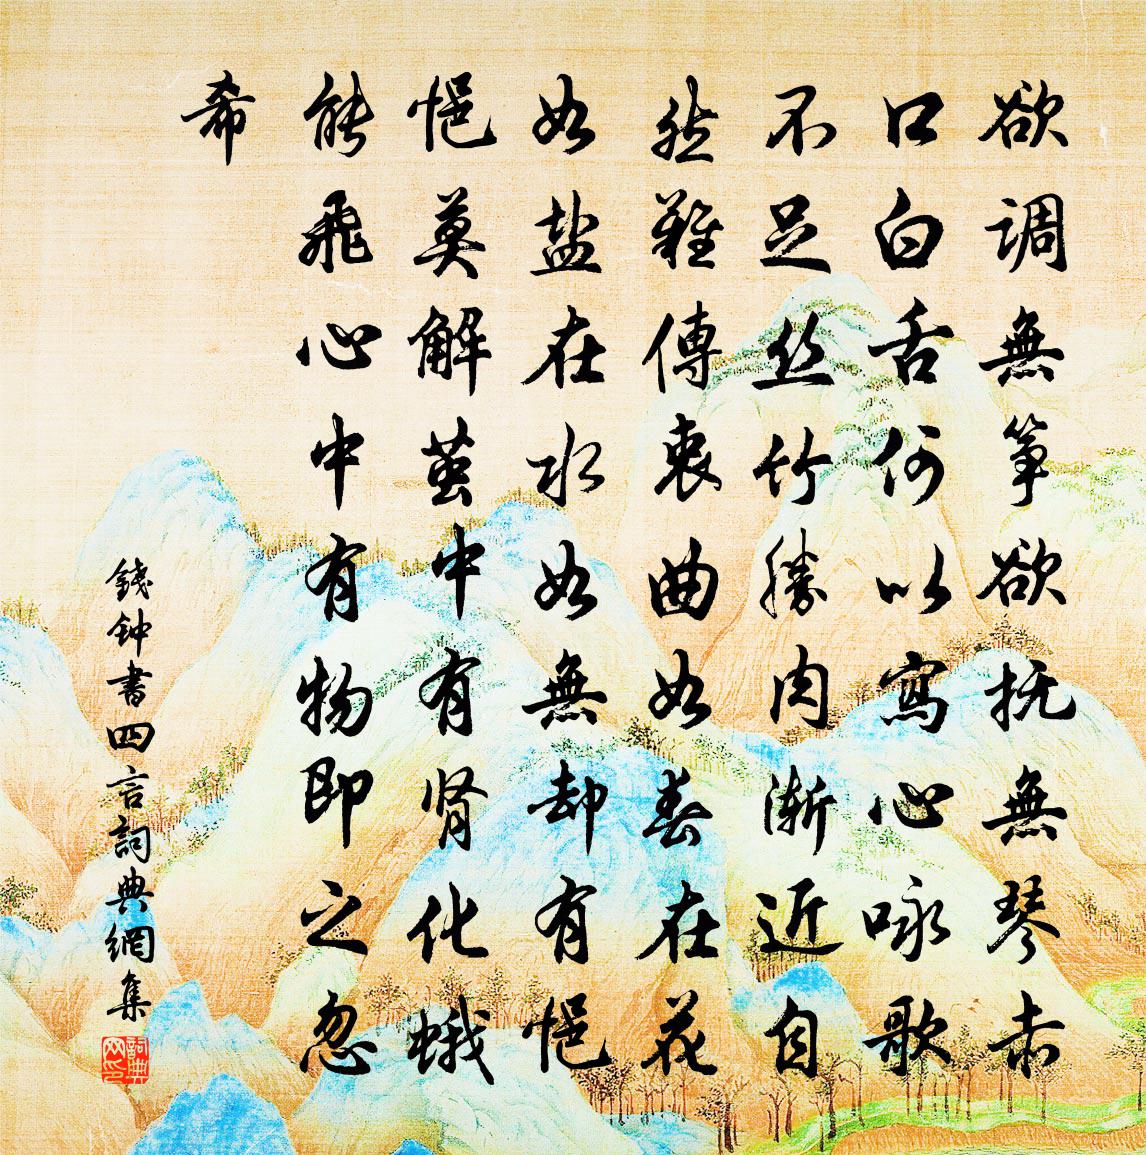 欲调無筝欲抚無琴赤
口白舌何以寫心咏歌
不足丝竹勝肉渐近自
然難傳衷曲如春在花
如盐在水如無却有悒
悒莫解茧中有肾化蛾
能飛心中有物即之忽
希
錢钟書四言詞典網集
詞典网印